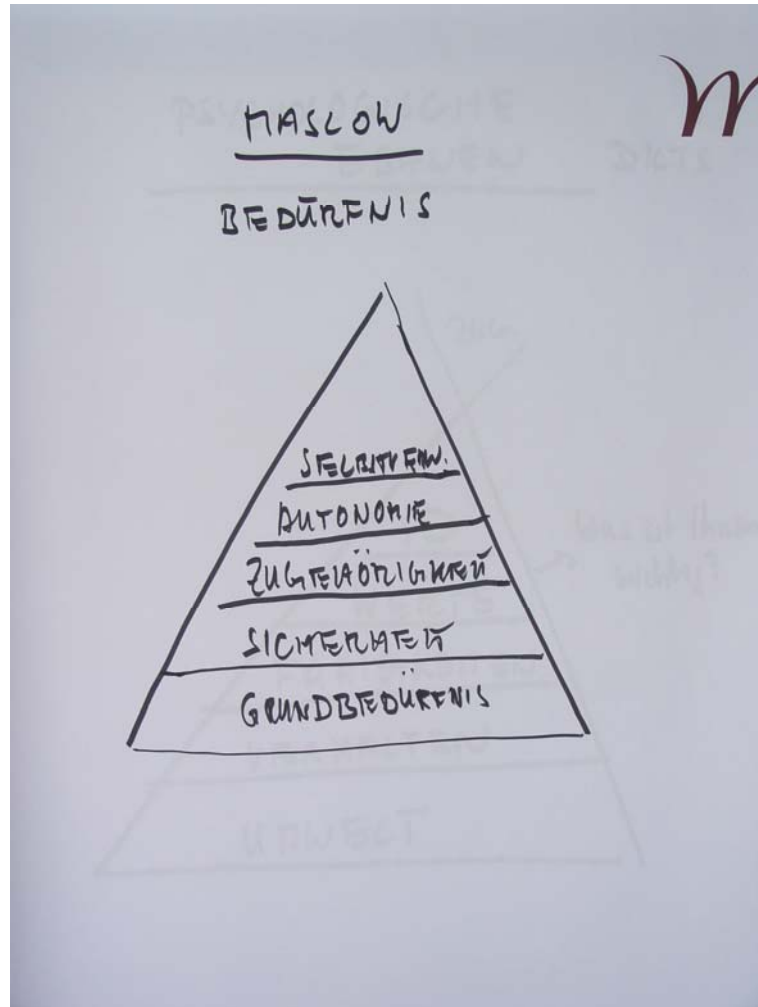 MASLOW
BEDÜRFNIS
SELBSTVERW.
AUTONOMIE
ZUGEHÖRIGKEIT
SICHERHEIT
GRUNDBEDÜRFNIS
UMWELT